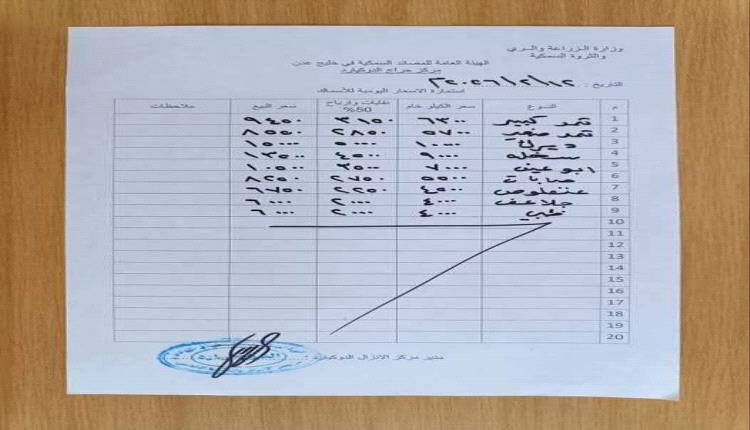 وزارة الزراعة والري
والثروة السمكية
الهيئة العامة للمصائد السمكية في خليج عدن
مركز حراج الدوكيارد
التاريخ : ٢٠٢٦/٢/١٢
استمارة الاسعار اليومية للأسماك
م النوع سعر الكيلو خام نفايات وارباح 50% سعر البيع ملاحظات
1 ثمد كبير ٦٣٠٠ ٣١٥٠ ٩٤٥٠
2 ثمد صغير ٥٧٠٠ ٢٨٥٠ ٨٥٥٠
3 ديرك ١٠٠٠٠ ٥٠٠٠ ١٥٠٠٠
4 سخله ٩٠٠٠ ٤٥٠٠ ١٣٥٠٠
5 ابو عين ٧٠٠٠ ٣٥٠٠ ١٠٥٠٠
6 ٥٥٠٠ ٢٧٥٠ ٨٢٥٠
7 عنفلوص ٤٥٠٠ ٢٢٥٠ ٦٧٥٠
8 جلاعف ٤٠٠٠ ٢٠٠٠ ٦٠٠٠
9 ٤٠٠٠ ٢٠٠٠ ٦٠٠٠
10
11
12
13
14
15
16
17
18
19
20
مدير مركز الانزال الدوكيارد :